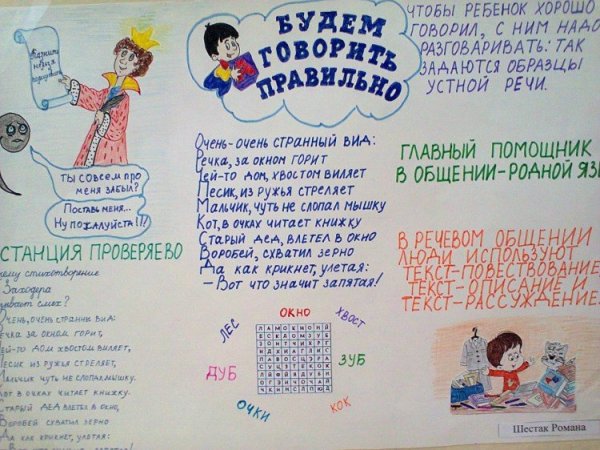 БУДЕМ
ГОВОРИТЬ
ПРАВИЛЬНО
ЧТОБЫ РЕБЕНОК ХОРОШО
ГОВОРИЛ, С НИМ НАДО
РАЗГОВАРИВАТЬ: ТАК
ЗАДАЮТСЯ ОБРАЗЦЫ
УСТНОЙ РЕЧИ.
Казнить
нельзя
ТЫ СОВСЕМ ПРО
МЕНЯ ЗАБЫЛ?
ПОСТАВЬ МЕНЯ...
НУ ПОЖАЛУЙСТА!!!
ОЧЕНЬ-ОЧЕНЬ СТРАННЫЙ ВИД:
РЕЧКА, ЗА ОКНОМ ГОРИТ
ЧЕЙ-ТО ДОМ, ХВОСТОМ ВИЛЯЕТ
ПЕСИК, ИЗ РУЖЬЯ СТРЕЛЯЕТ
МАЛЬЧИК, ЧУТЬ НЕ СЛОПАЛ МЫШКУ
КОТ, В ОЧКАХ ЧИТАЕТ КНИЖКУ
СТАРЫЙ ДЕД, ВЛЕТЕЛ В ОКНО
ВОРОБЕЙ, СХВАТИЛ ЗЕРНО
ДА КАК КРИКНЕТ, УЛЕТАЯ:
- ВОТ ЧТО ЗНАЧИТ ЗАПЯТАЯ!
ГЛАВНЫЙ ПОМОЩНИК
В ОБЩЕНИИ-РОДНОЙ ЯЗ
В РЕЧЕВОМ ОБЩЕНИИ
ЛЮДИ ИСПОЛЬЗУЮТ
ТЕКСТ-ПОВЕСТВОВАНИЕ,
ТЕКСТ-ОПИСАНИЕ И
ТЕКСТ-РАССУЖДЕНИЕ.
СТАНЦИЯ ПРОВЕРЯЕВО
ему стихотворение
Заходера
ывает смех?
ОЧЕНЬ, ОЧЕНЬ СТРАННИ ВИД:
ЕЧКА ЗА ОКНОМ ГОРИТ,
ЕЙ-ТО ДОМ ХВОСТОМ ВИЛЯЕТ,
ПЕСИК ИЗ РУЖЬЯ СТРЕЛЯЕТ,
МАЛЬЧИК ЧУТЬ НЕ СЛОПАЛ МЫШКУ.
КОТ В ОЧКАХ ЧИТАЕТ КНИЖКУ
СТАРЫЙ ДЕД ВЛЕТЕЛ В ОКНО,
ВОРОБЕЙ СХВАТИЛ ЗЕРНО
ДА КАК КРИКНЕТ, УЛЕТАЯ:
ЛЕС
ОКНО
ХВОСТ
ДУБ
ЗУБ
ОЧКИ
КОК
Шестак Романа